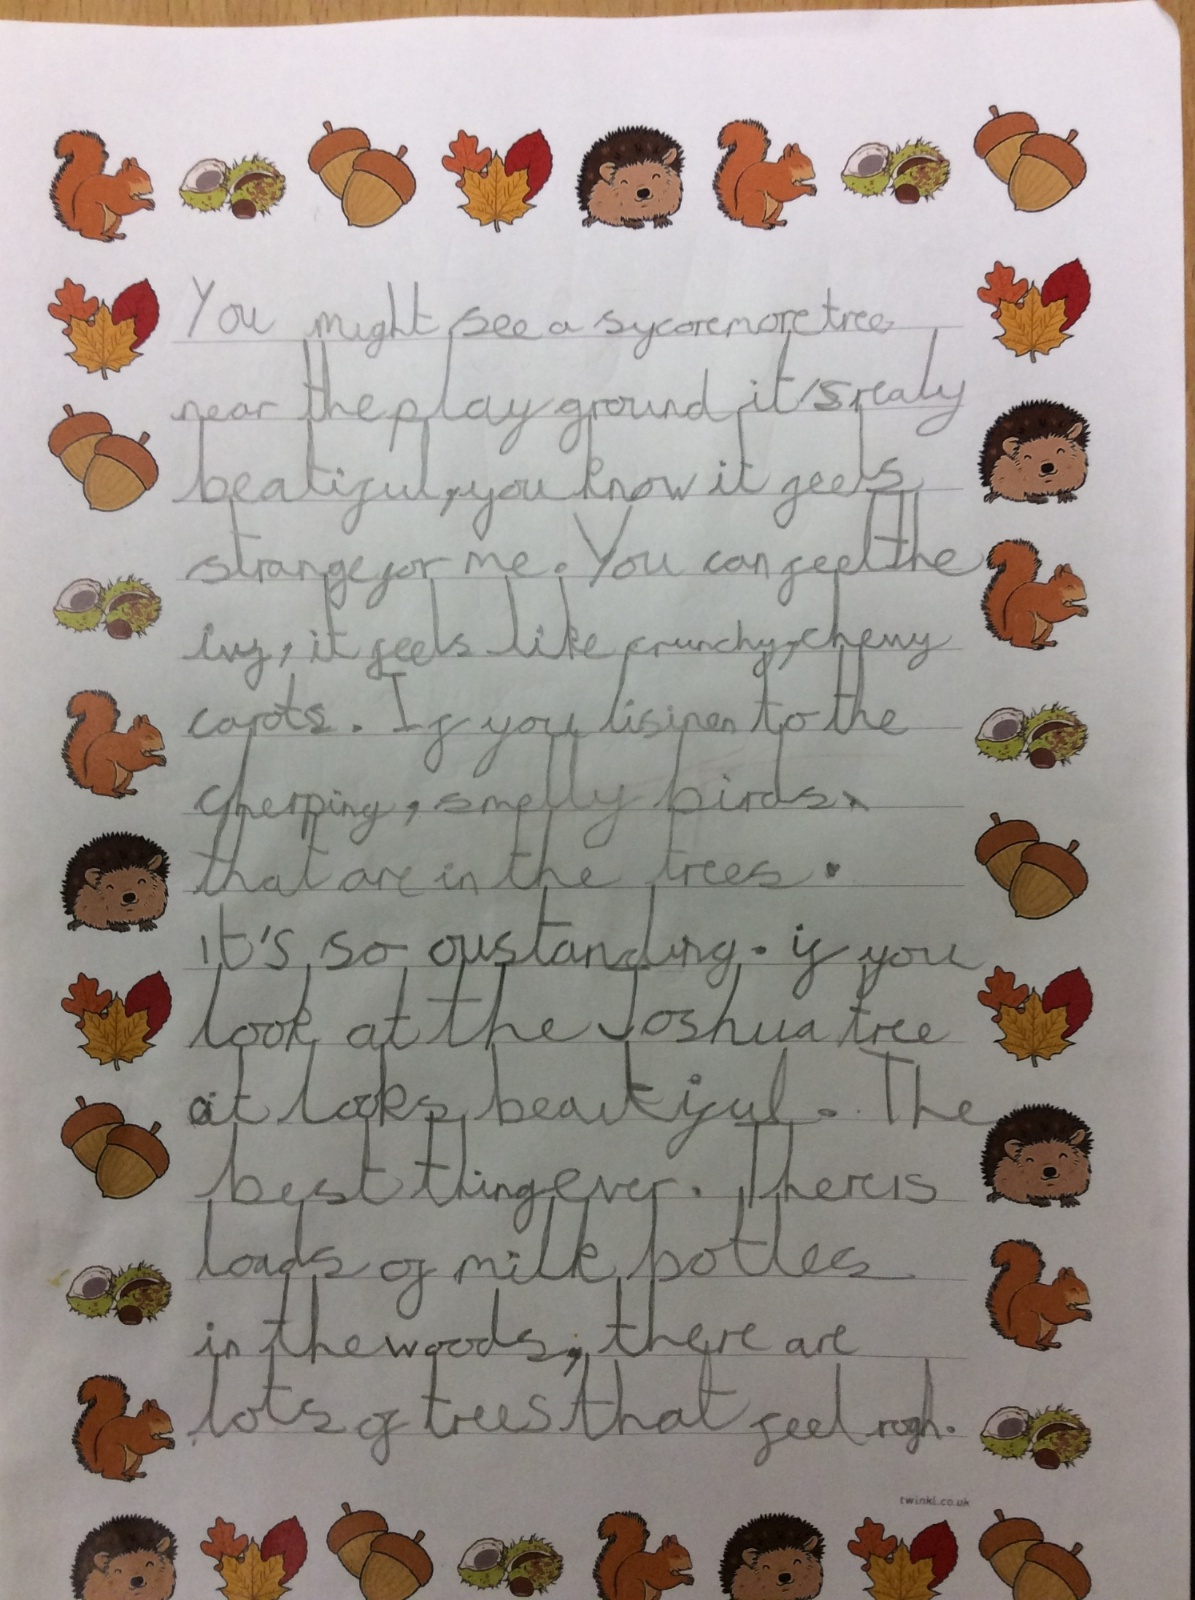 You might see a sycoremore tree
near the play ground it's realy
beatiful, you know it feels
strange for me. You can feel the
ivy, it feels like crunchy, chewy
carots. If you lisinen to the
cherping, smelly birds,
that are in the trees.
it's so oustanding. if you
look at the Joshua tree
it looks beautiful. The
best thing ever. There is
loads of milk bottles
in the woods, there are
lots of trees that feel rogh.
twinkl.co.uk